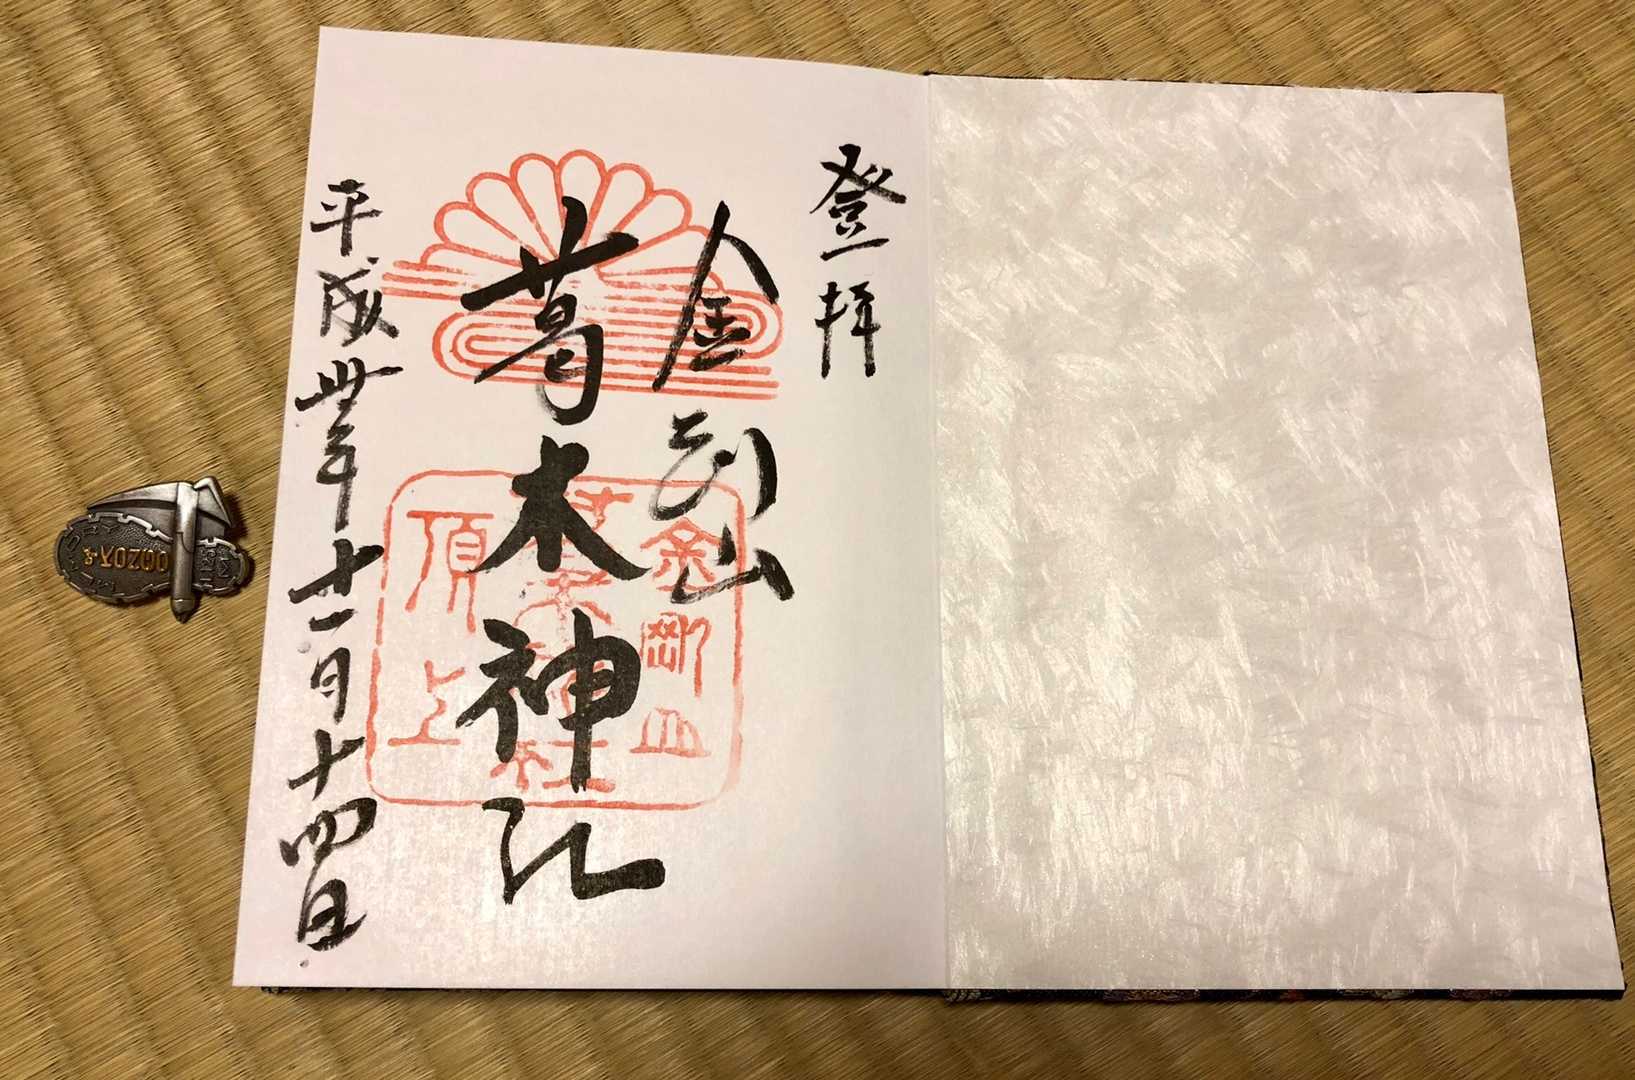 登拝
金剛山
葛木神社
平成卅年十一月十四日
金剛山
葛木神社
頂上